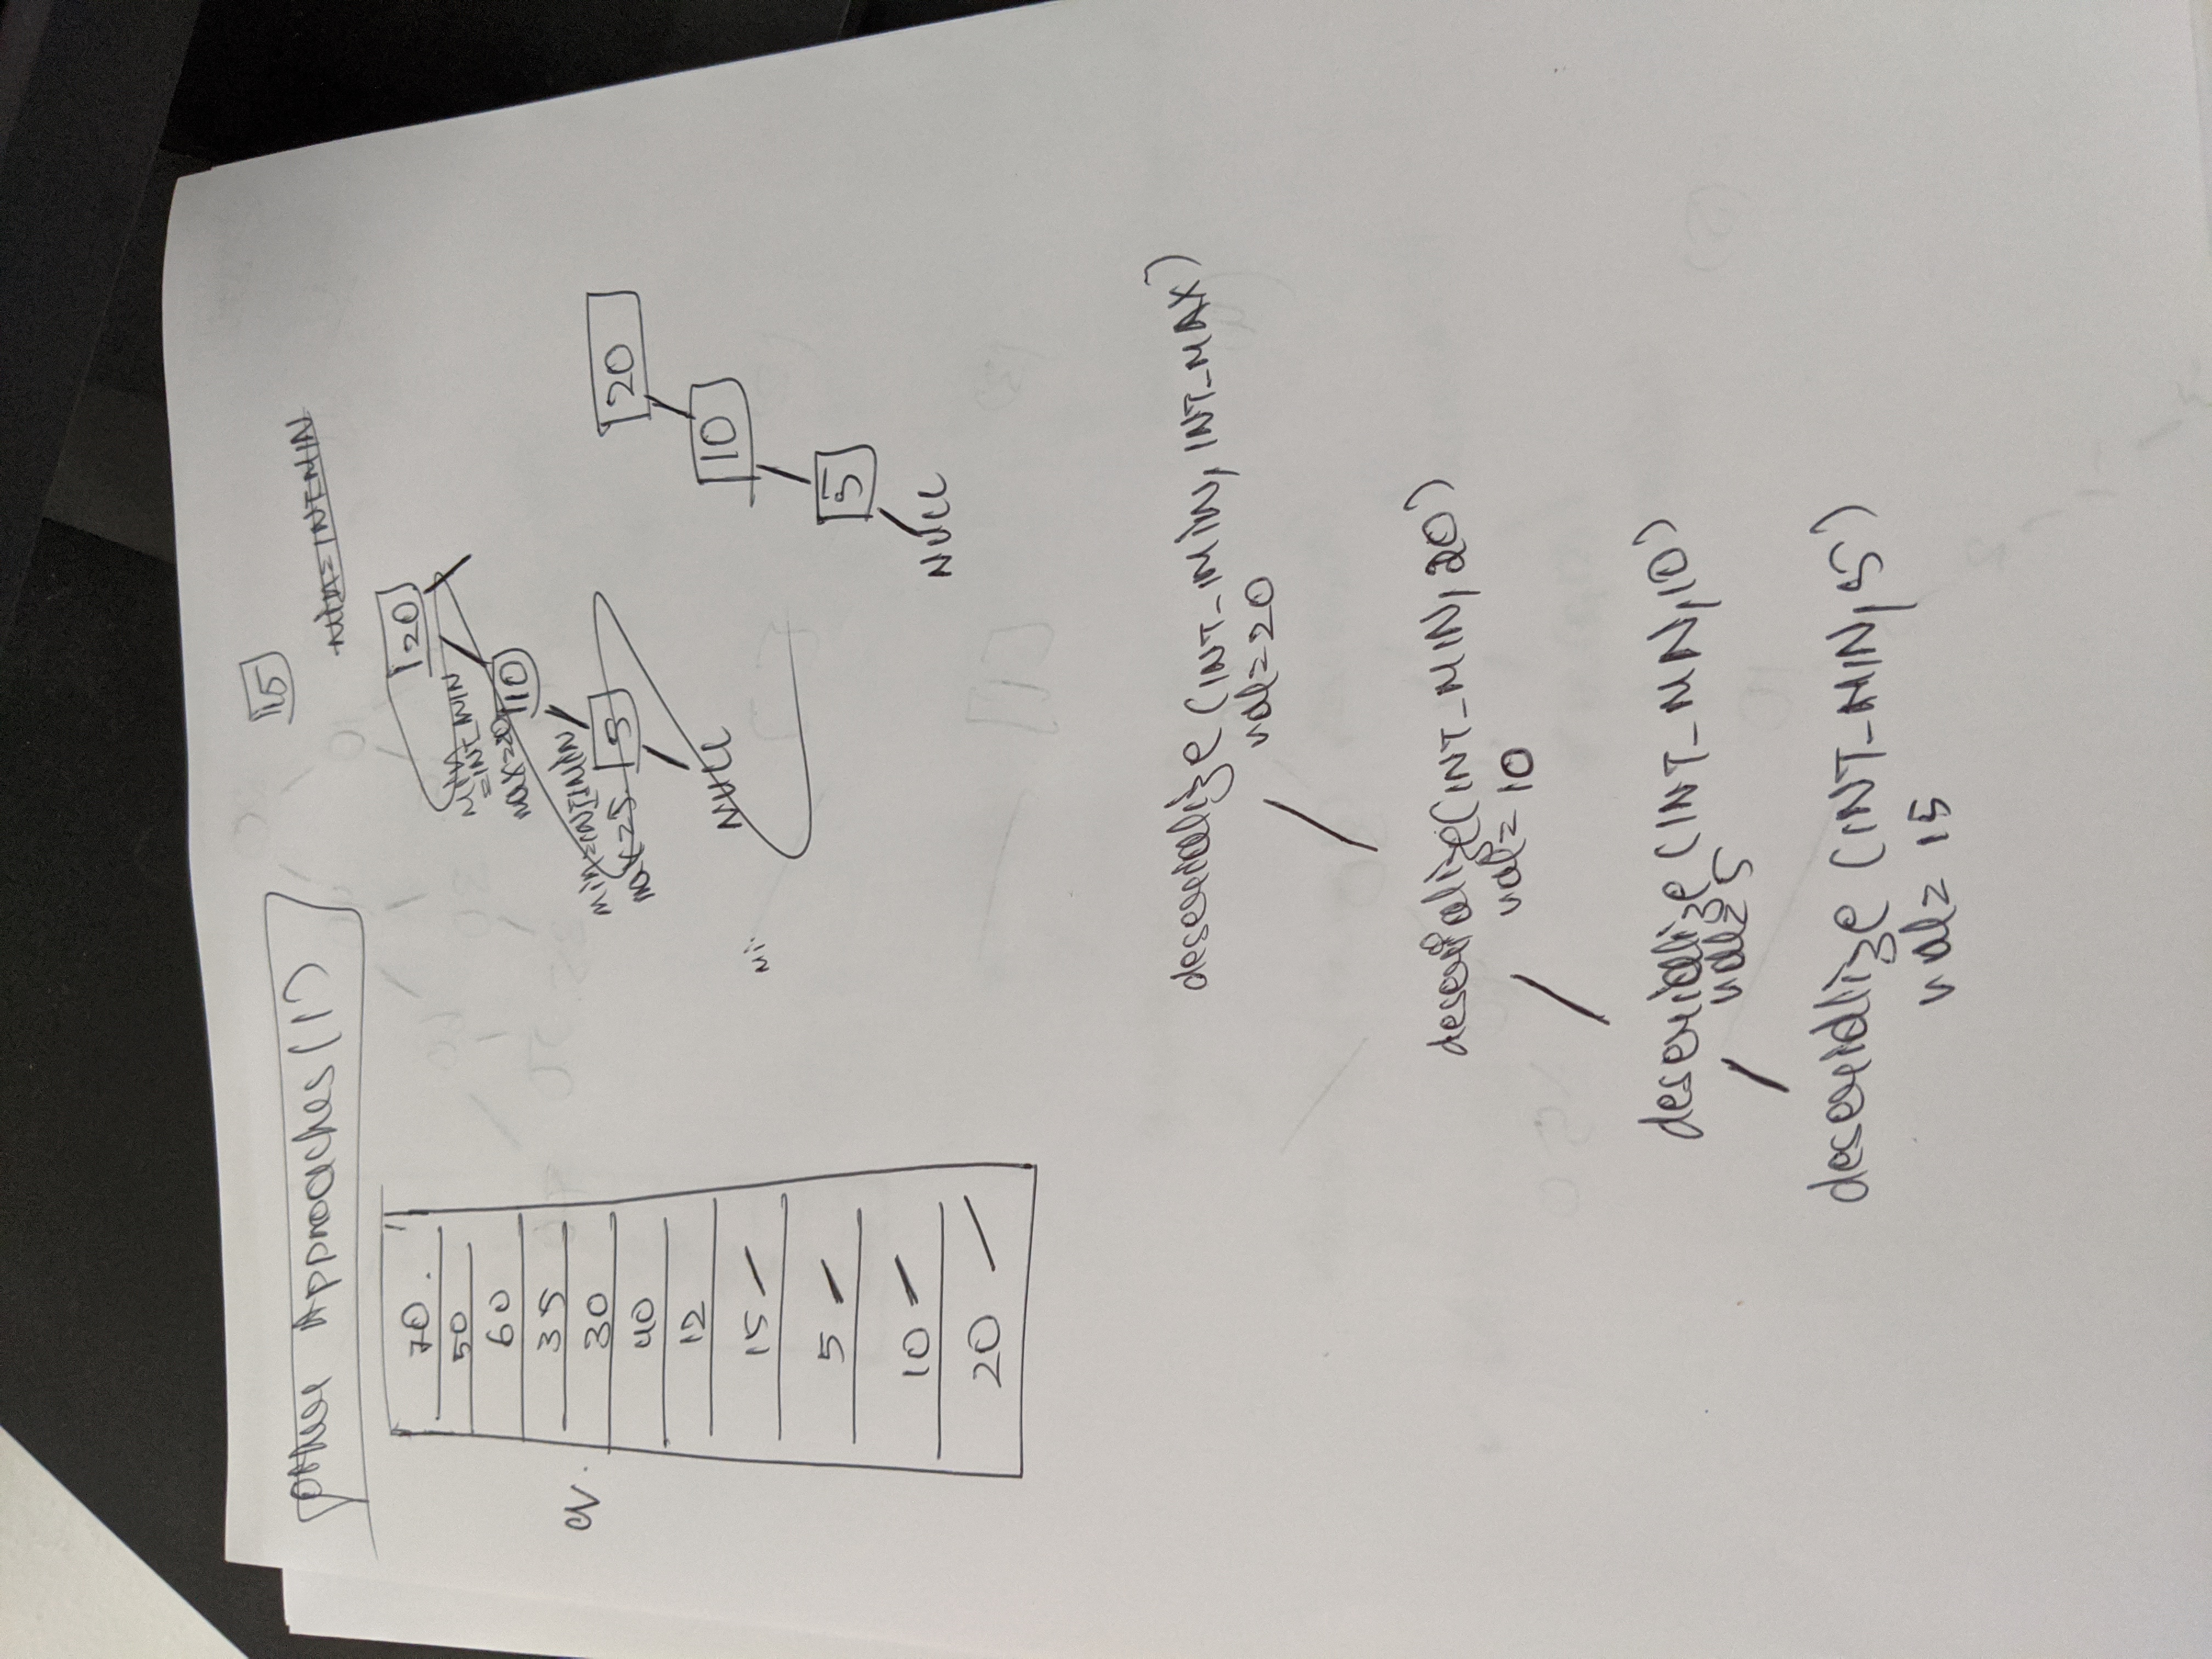 Other Approaches (1)
15
Min=INT MIN
70.
50
60
35
30
40
12
15
5
10
20
q.
20
min
=INT MIN
max=20
10
min=INTMIN
max=5
5
NULL
Mi
20
10
5
NULL
deserialize (INT_MIN, INT_MAX)
val=20
deserialize(INT_MIN, 20)
val= 10
deserialize (INT_MN, 10)
val=5
deserialize (INT_MIN, 5)
val= 15